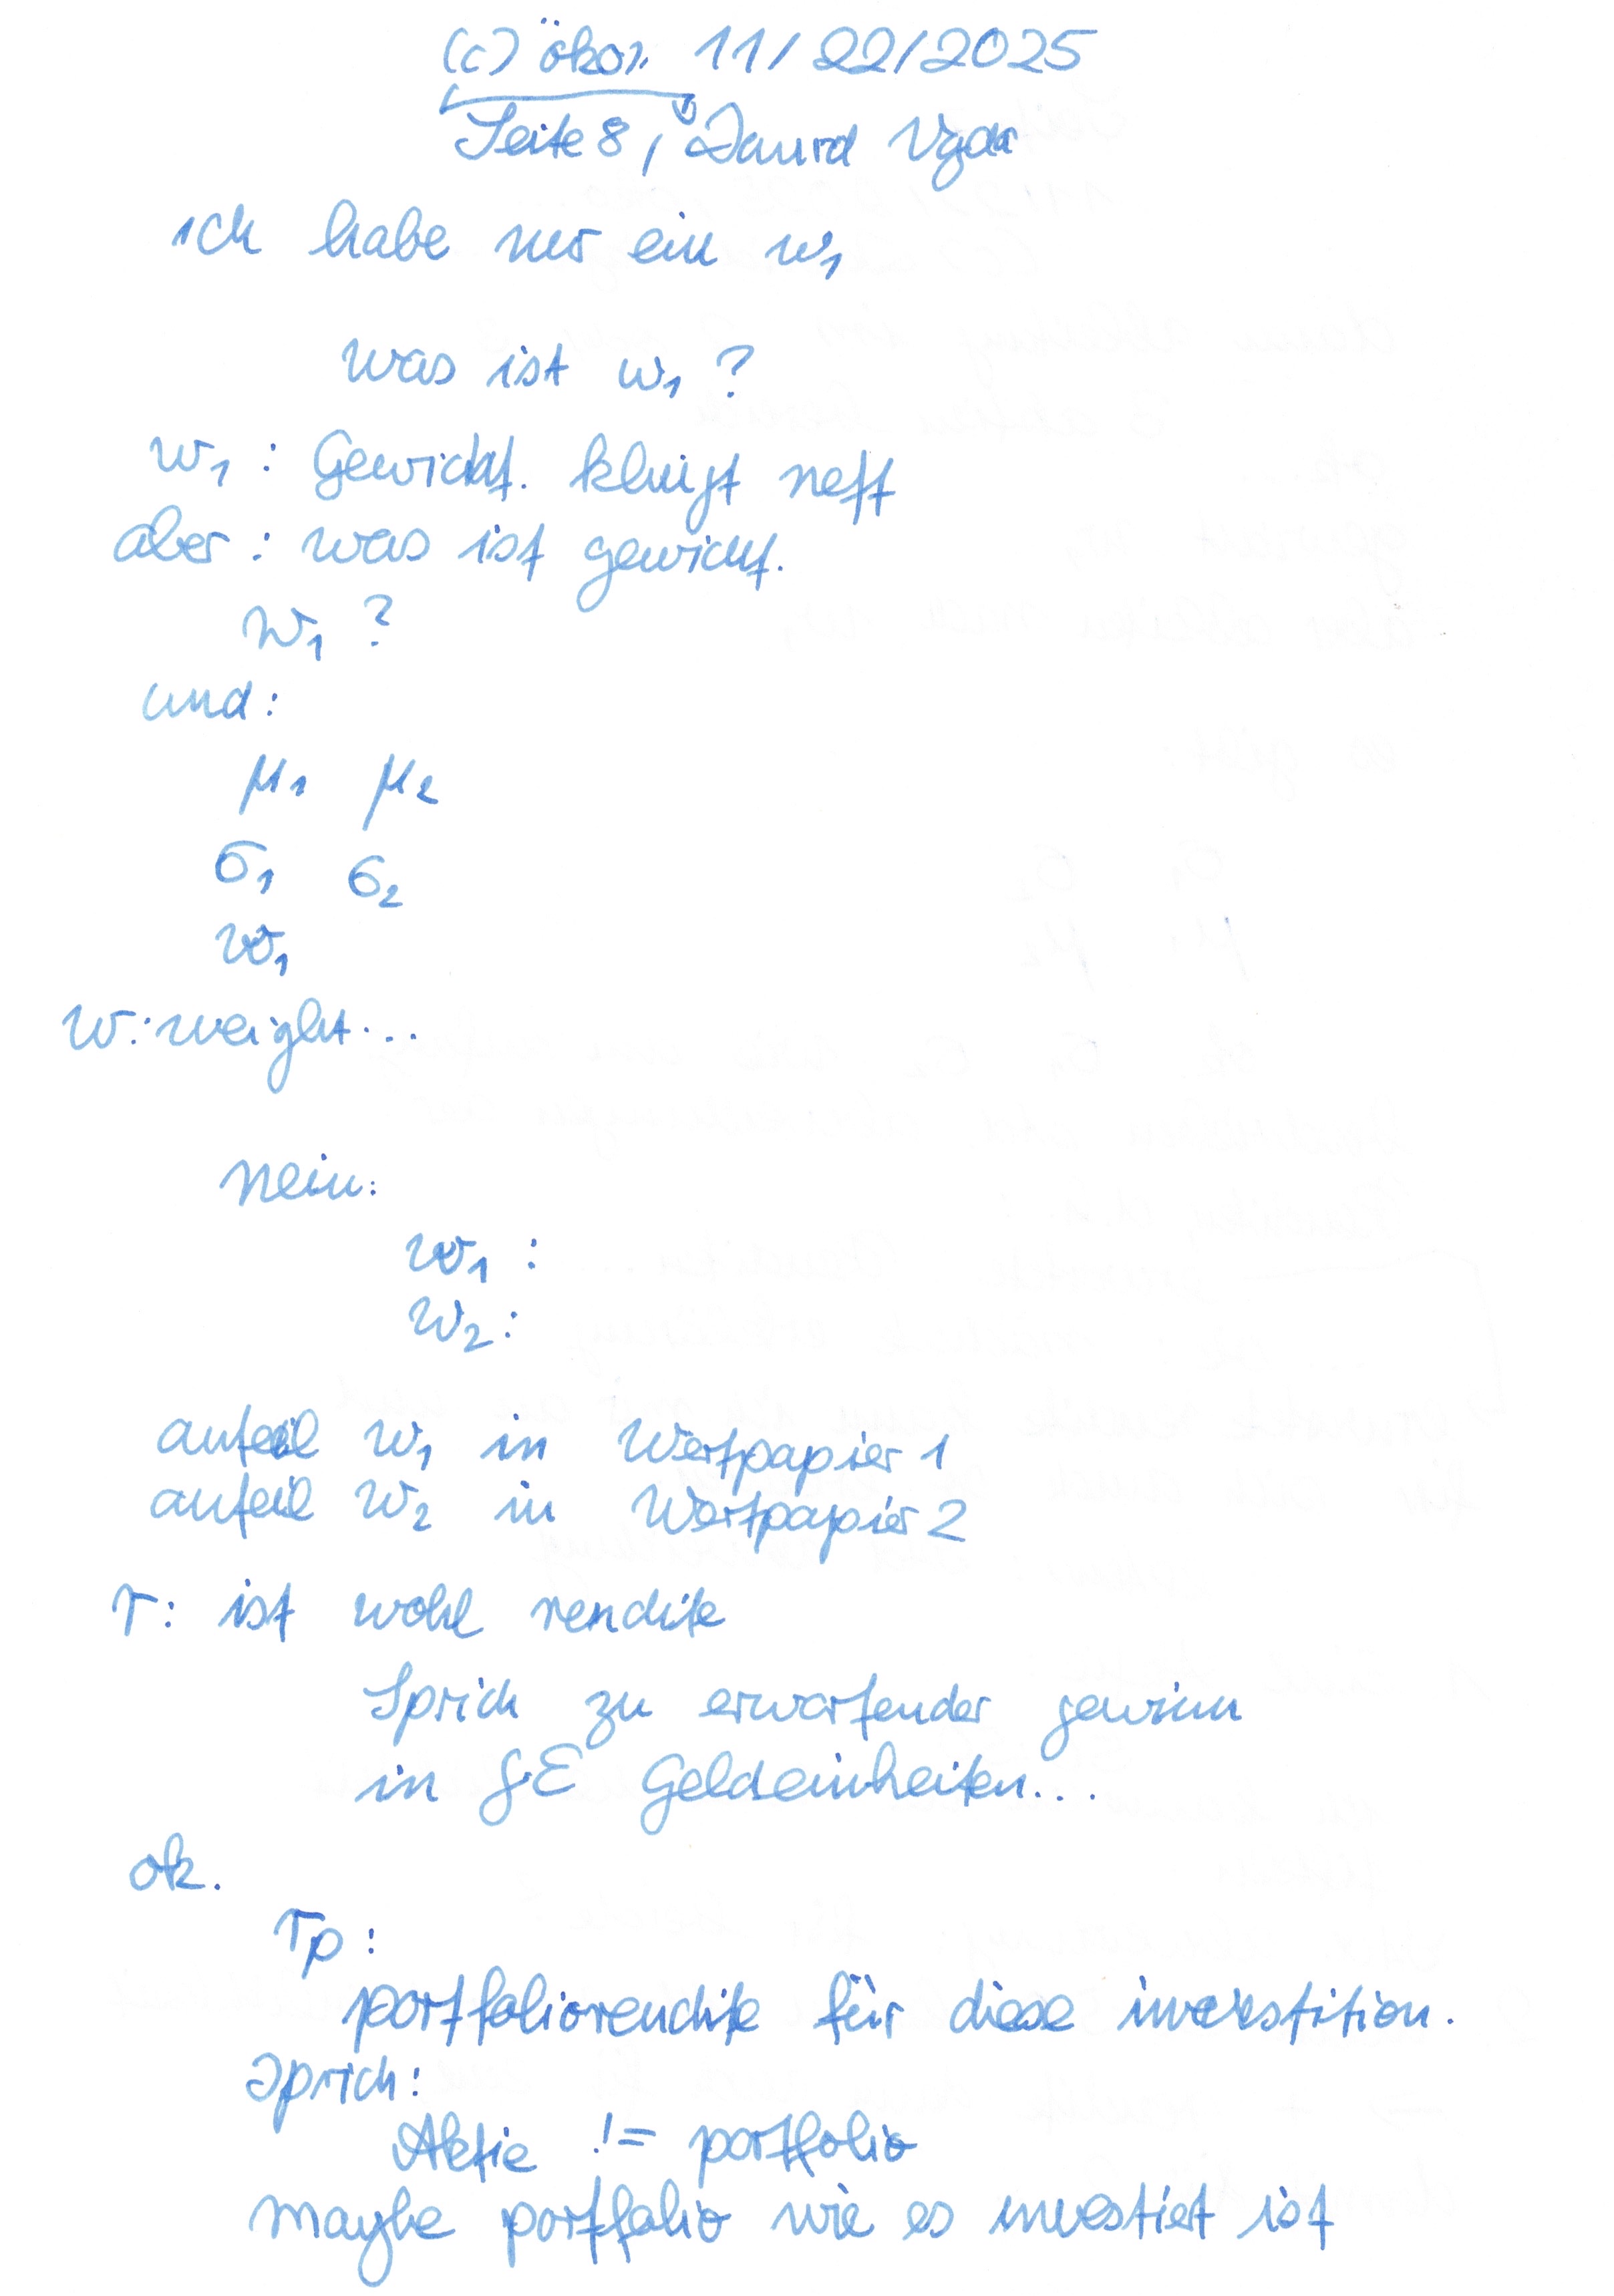 (c) ökon. 11/22/2025
Seite 8, David Vajda
ich habe nur ein w₁
was ist w₁ ?
w₁ : Gewicht. klingt nett
aber : was ist gewicht.
w₁ ?
und :
μ₁ μ₂
σ₁ σ₂
w₁
w: weight...
nein:
w₁ :
w₂ :
anteil w₁ in Wertpapier 1
anteil w₂ in Wertpapier 2
r: ist wohl rendite
Sprich zu erwartender gewinn
in GE Geldeinheiten...
ok.
rp :
portfoliorendite für diese investition.
Sprich:
Aktie != portfolio
maybe portfolio wie es investiert ist